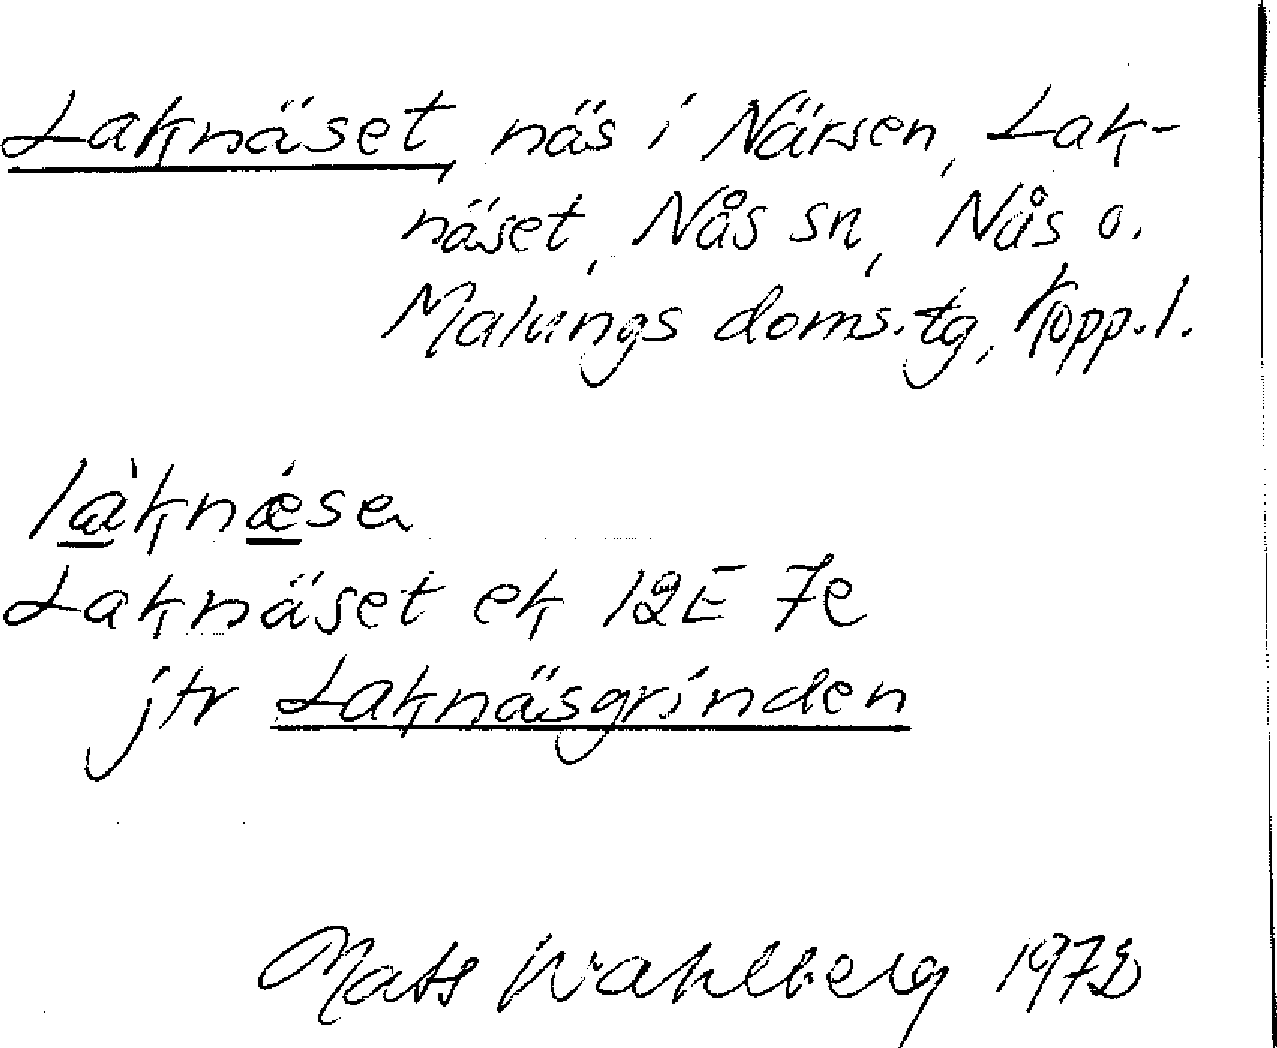 Laknäset, näs i Närsen, Lak-
näset, Nås sn, Nås o.
Malungs doms.tg, Kopp.l.
làknǽsa
Laknäset ek 12E 7e
jfr Laknäsgrinden
Mats Wahlberg 1972